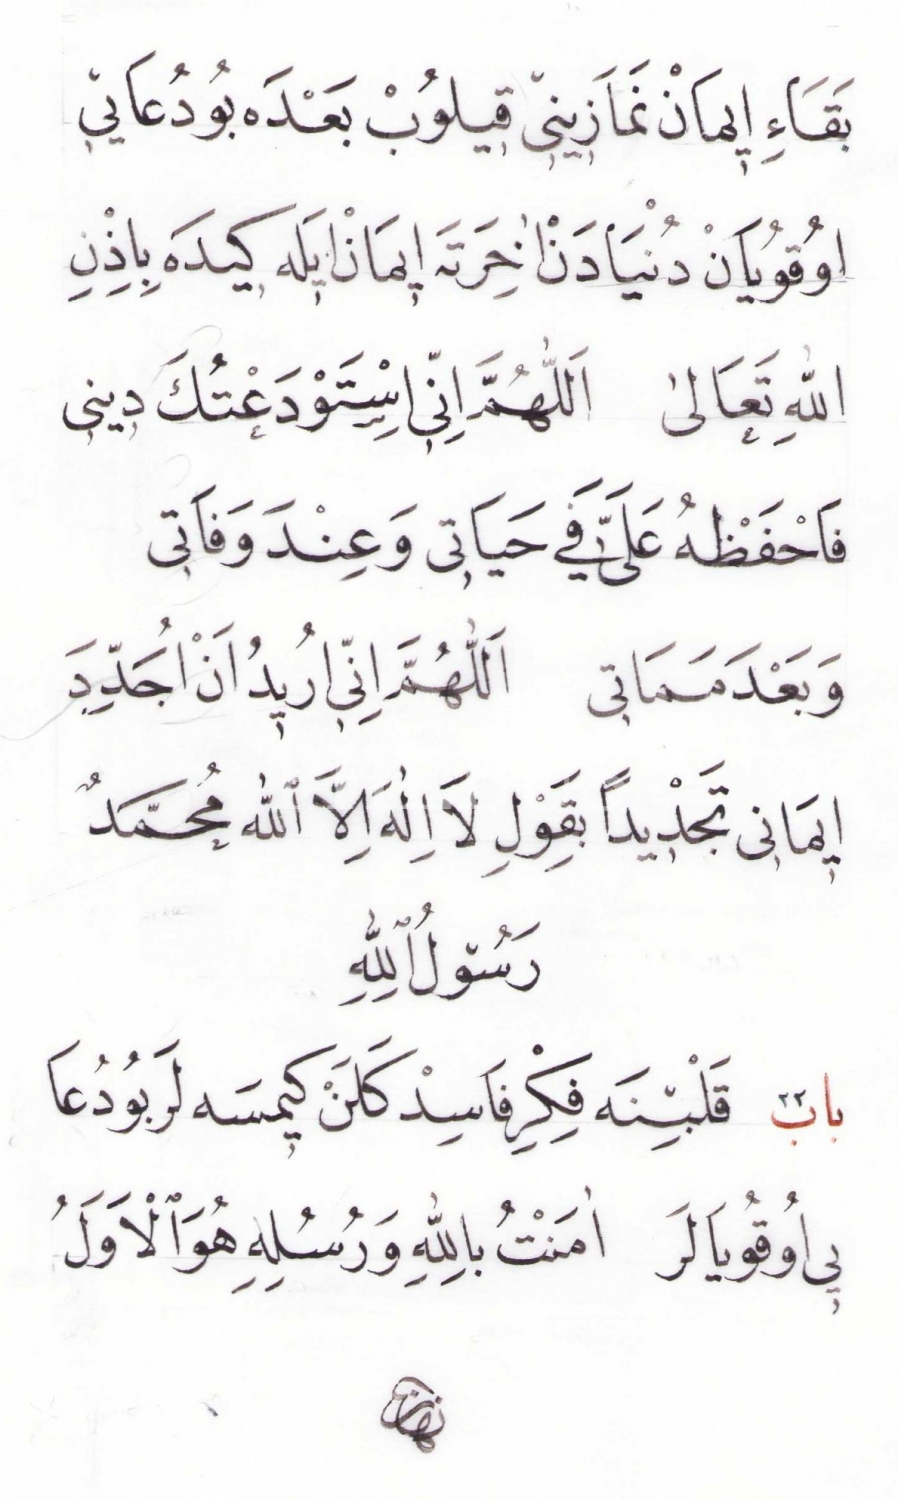 بَقَاءِ اِيمَانْ نَمَازِينِىّ قِيلُوبْ بَعْدَه بُو دُعَايِىّ
اوُقُويَانْ دُنْيَادَنْ اٰخِرَتَه اِيمَانْ اِيلَه كِيدَه بِاِذْنِ
اللّٰهِ تَعَالىٰ اَللّٰهُمَّ اِنِّى اِسْتَوْدَعْتُكَ دِينِى
فَاحْفَظْهُ عَلَىَّ فِي حَيَاتِى وَعِنْدَ وَفَاتِى
وَبَعْدَ مَمَاتِى اَللّٰهُمَّ اِنِّى اُرِيدُ اَنْ اُجَدِّدَ
اِيمَانِى تَجْدِيداً بِقَوْلِ لاَ اِلٰهَ اِلاَّ ٱللّٰهُ مُحَمَّدٌ
رَسُولُ ٱللّٰهِ
باب ٢٢ قَلْبِنَه فِكْرِ فَاسِدْ كَلَنْ كِيمْسَه لَر بُو دُعَا
يِى اُوقُويَالَر اٰمَنْتُ بِاللّٰهِ وَرُسُلِهِ هُوَ ٱلْاَوَّلُ